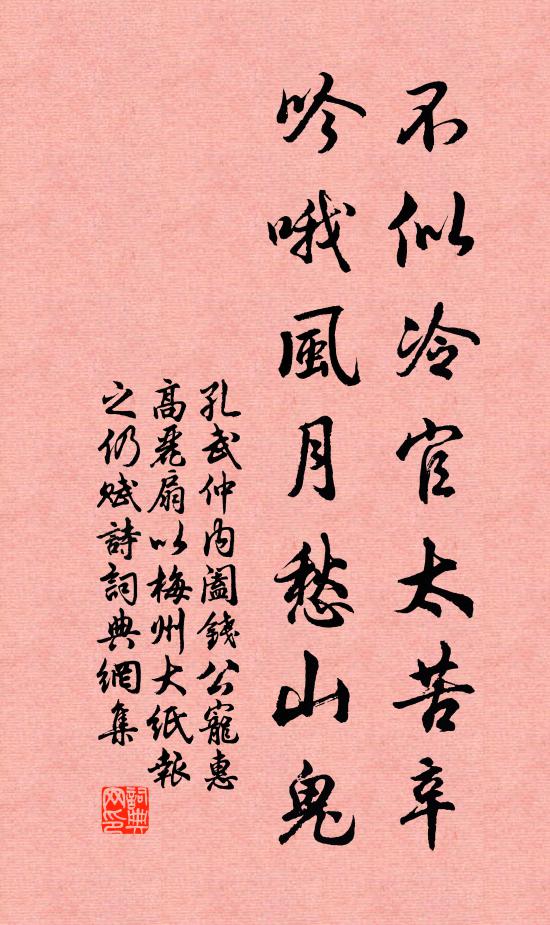 不似冷官太苦辛
吟哦風月愁山鬼
孔武仲內閣錢公寵惠
高麗扇以梅州大紙報
之仍賦詩詞典網集
詞典網印